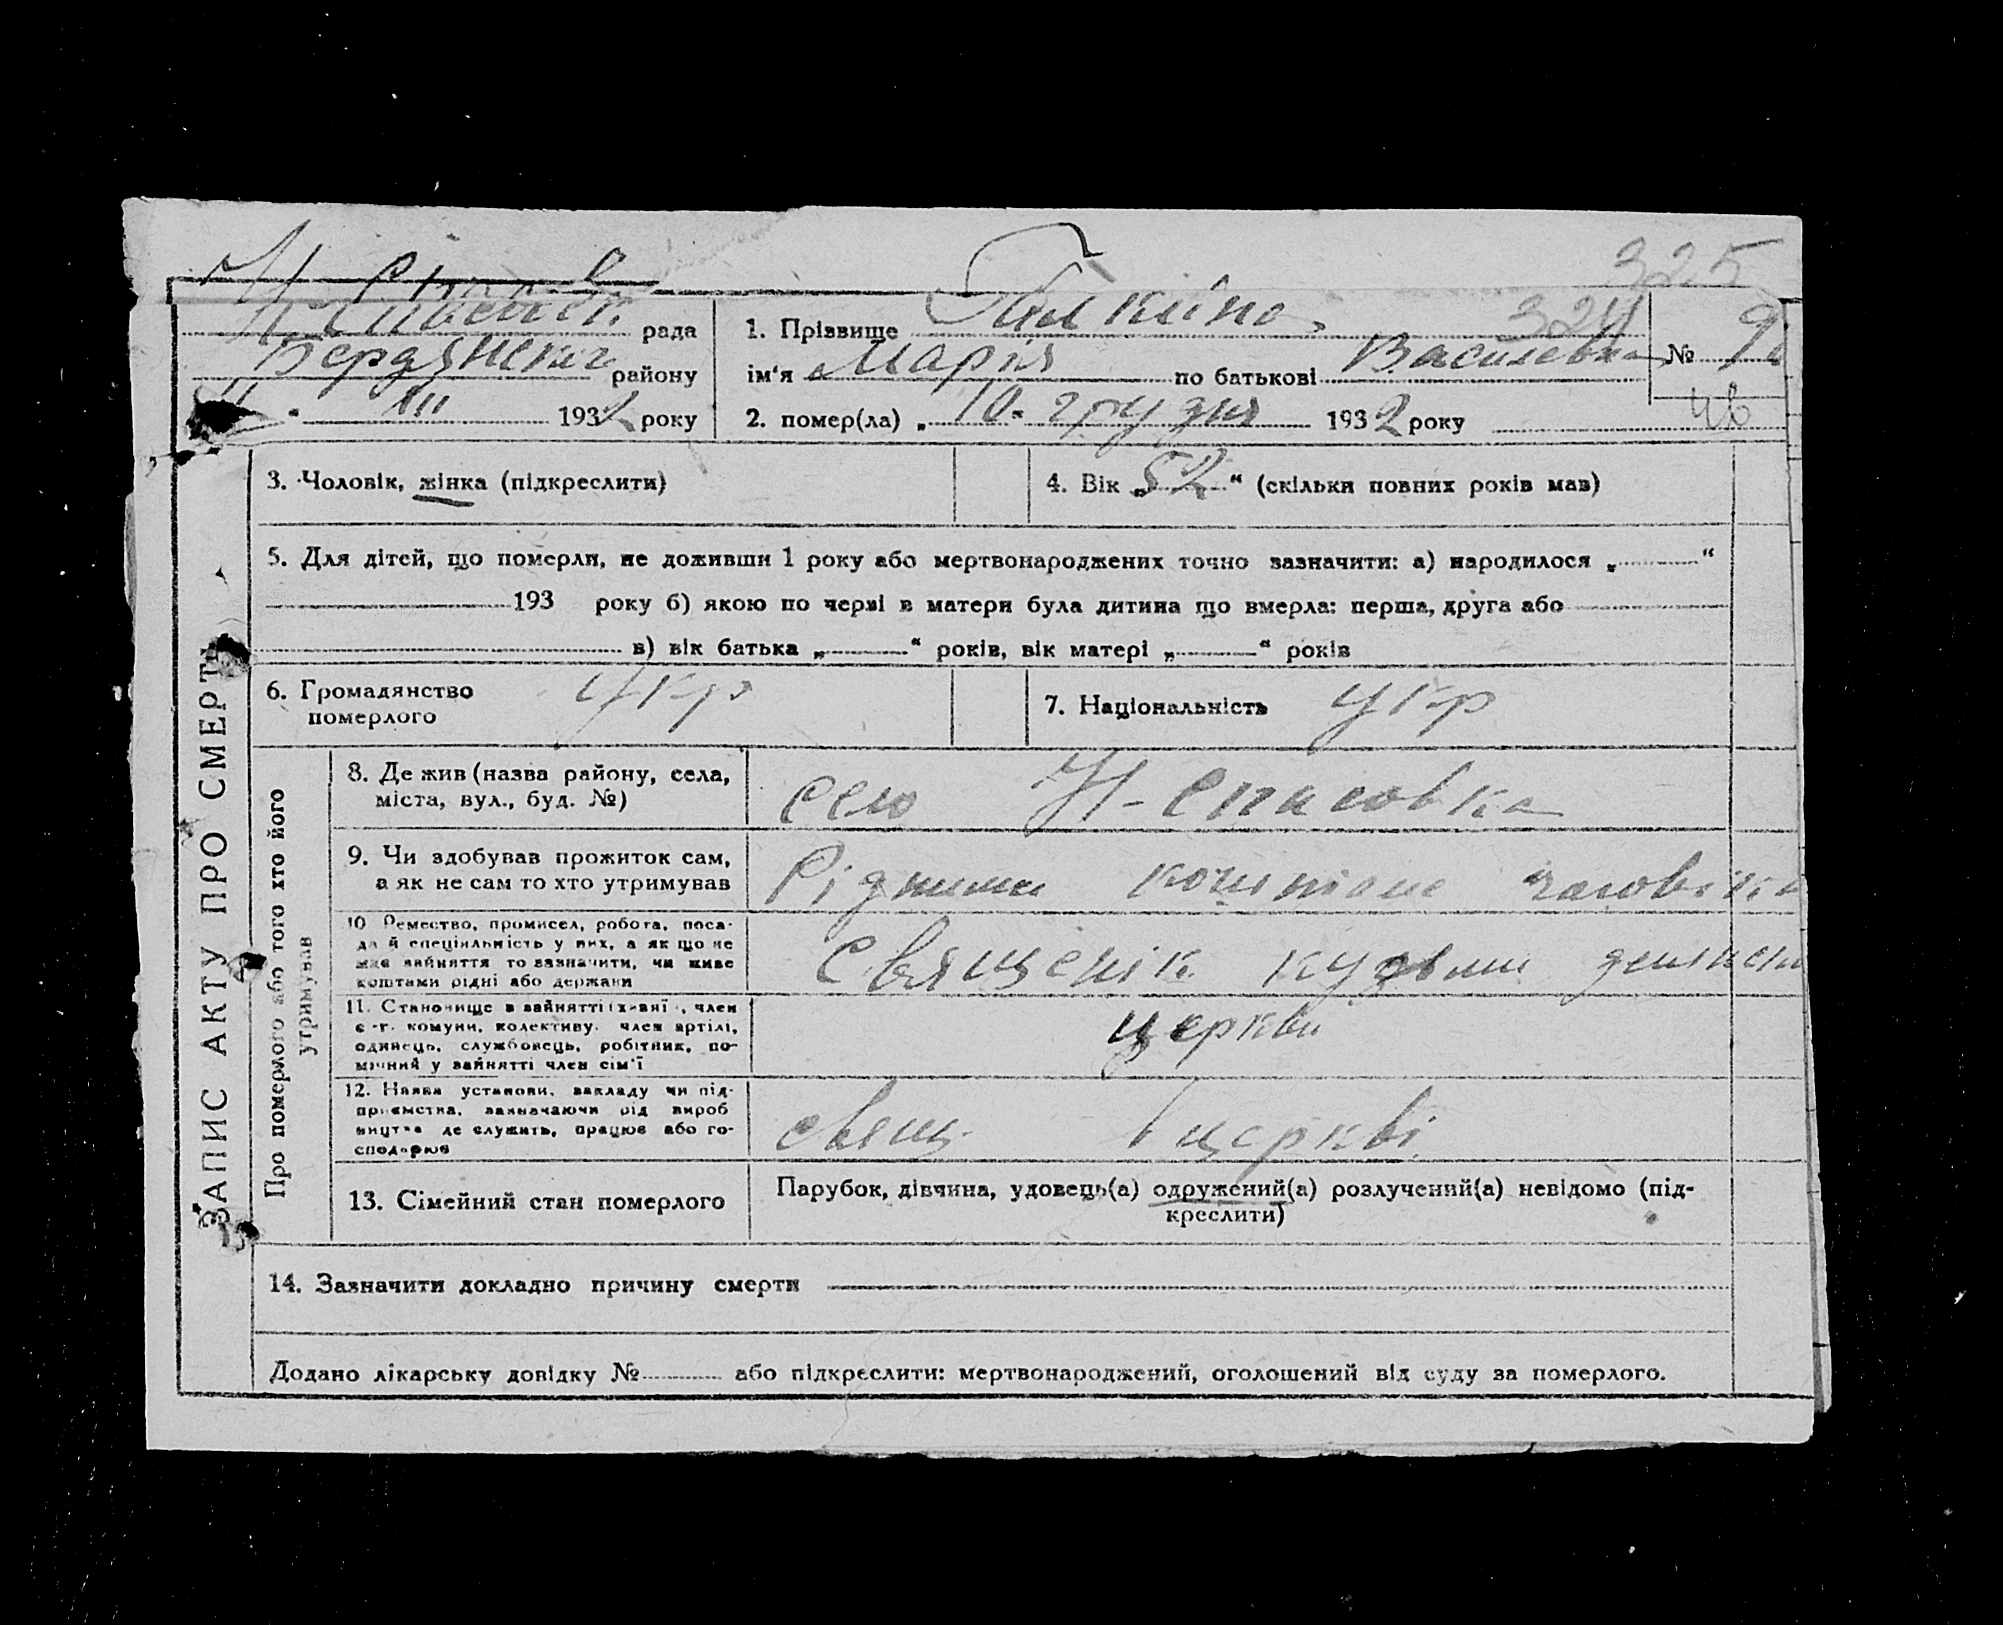 325
Н Спасівськ. рада
Бердянськог району
„11“ XII 1932 року
1. Прізвище Галкіна 324
ім'я Марія по батькові Василевна № 9
2. помер(ла) „10“ грудня 1932 року
ЗАПИС АКТУ ПРО СМЕРТЬ
3. Чоловік, жінка (підкреслити)
4. Вік „52“ (скільки повних років мав)
5. Для дітей, що померли, не доживши 1 року або мертвонароджених точно зазначити: а) народилося „ “
193 року б) якою по черві в матери була дитина що вмерла: перша, друга або
в) вік батька „ “ років, вік матері „ “ років
6. Громадянство укр
померлого
7. Національність укр
Про померлого або того хто його
утримував
8. Де жив (назва району, села,
міста, вул., буд. №)
село Н-Спасовка
9. Чи здобував прожиток сам,
а як не сам то хто утримував
Рідними коштами чаловіка
10 Ремество, промисел, робота, поса-
да й спеціяльність у них, а як що не
має зайняття то зазначити, чи живе
коштами рідні або держави
Священік
церкви
11. Становище в зайнятті (хазяї, член
с.-г. комуни, колективу, член артілі,
одинець, службовець, робітник, по-
мічний у зайнятті член сім'ї
12. Назва установи, закладу чи під-
приємства, зазначаючи рід вироб
ництва де служить, працює або го-
сподарює
свящ. церкві
13. Сімейний стан померлого
Парубок, дівчина, удовець(а) одружений(а) розлучений(а) невідомо (під-
креслити)
14. Зазначити докладно причину смерти
Додано лікарську довідку № або підкреслити: мертвонароджений, оголошений від суду за померлого.